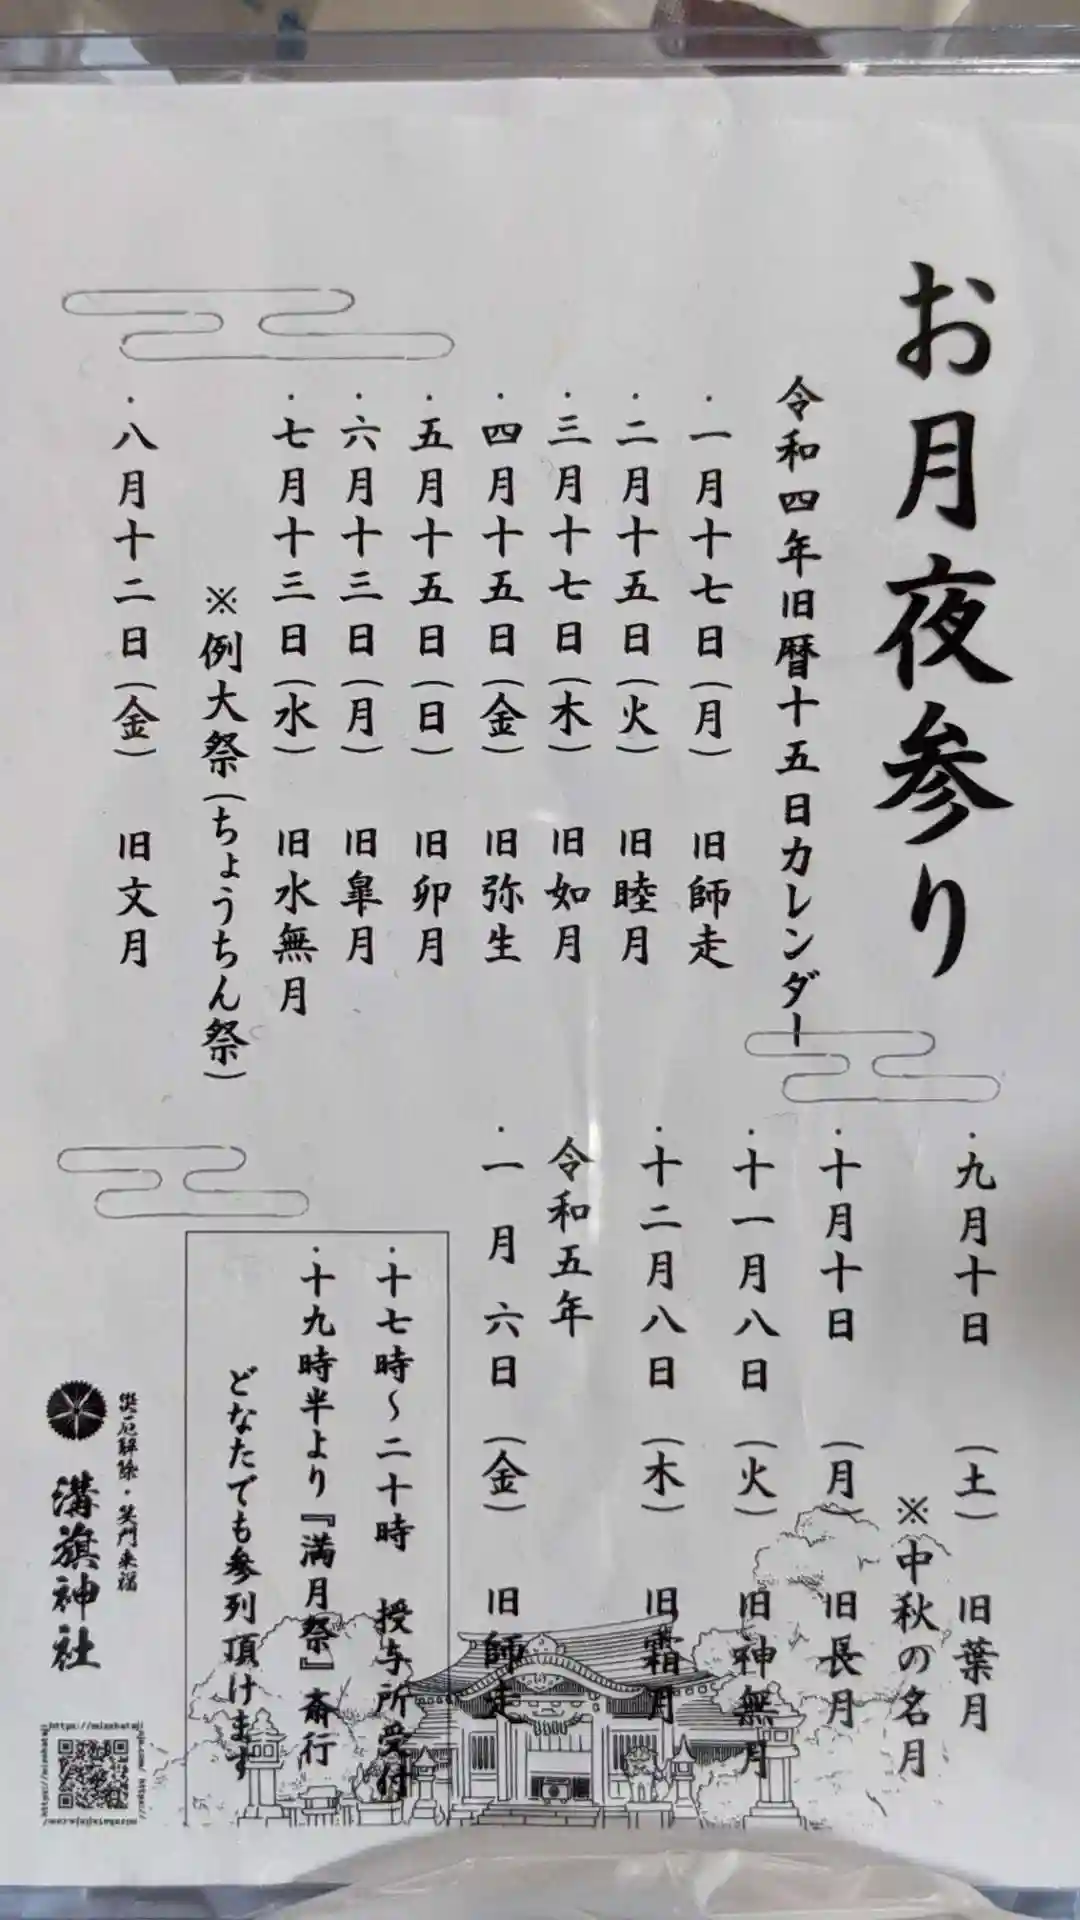 お月夜参り
令和四年旧暦十五日カレンダー
・一月十七日(月) 旧師走
・二月十五日(火) 旧睦月
・三月十七日(木) 旧如月
・四月十五日(金) 旧弥生
・五月十五日(日) 旧卯月
・六月十三日(月) 旧皐月
・七月十三日(水) 旧水無月
※例大祭(ちょうちん祭)
・八月十二日(金) 旧文月
・九月十日 (土) 旧葉月
※中秋の名月
・十月十日 (月) 旧長月
・十一月八日 (火) 旧神無月
・十二月八日 (木) 旧霜月
令和五年
・一月六日 (金) 旧師走
・十七時〜二十時 授与所受付
・十九時半より『満月祭』斎行
どなたでも参列頂けます
災厄解除・笑門来福
溝旗神社